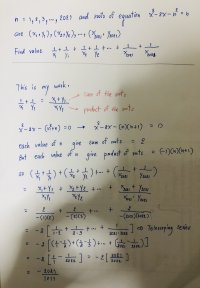 n = 1, 2, 3, ..., 2021 and roots of equation x² - 2x - n² - n = 0
are (x₁, y₁), (x₂, y₂), ..., (x₂₀₂₁, y₂₀₂₁)
Find value 1/x₁ + 1/y₁ + 1/x₂ + 1/y₂ + ... + 1/x₂₀₂₁ + 1/y₂₀₂₁
This is my work.
1/x₁ + 1/y₁ = (x₁ + y₁)/(x₁y₁) → sum of the roots
→ product of the roots
x² - 2x - (n² + n) = 0 → x² - 2x - (n)(n+1) = 0
Each value of n give sum of roots = 2
But each value of n give product of roots = (-1)(n)(n+1)
so (1/x₁ + 1/y₁) + (1/x₂ + 1/y₂) + ... + (1/x₂₀₂₁ + 1/y₂₀₂₁)
= (x₁ + y₁)/(x₁y₁) + (x₂ + y₂)/(x₂y₂) + ... + (x₂₀₂₁ + y₂₀₂₁)/(x₂₀₂₁ y₂₀₂₁)
= 2/(-(1)(2)) + 2/(-(2)(3)) + ... + 2/(-(2021)(2022))
= -2 [1/(1·2) + 1/(2·3) + ... + 1/(2021·2022)] Telescoping series
= -2 [(1/1 - 1/2) + (1/2 - 1/3) + ... + (1/2021 - 1/2022)]
= -2 [1/1 - 1/2022] = -2 [2021/2022]
= - 2021/1011